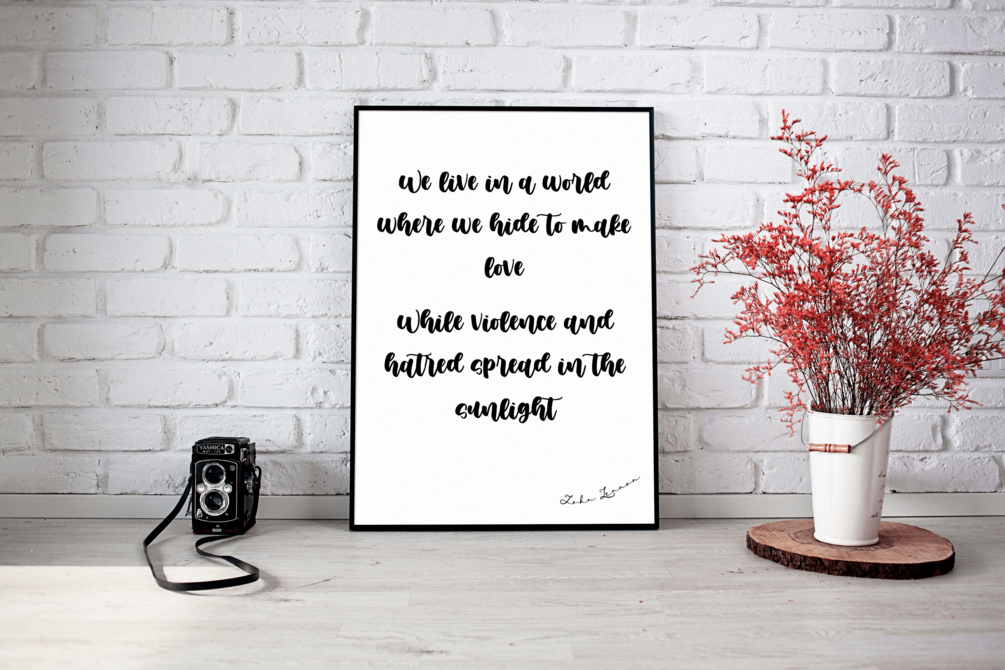 We live in a world
where we hide to make
love
While violence and
hatred spread in the
sunlight
John Lennon
YASHICA